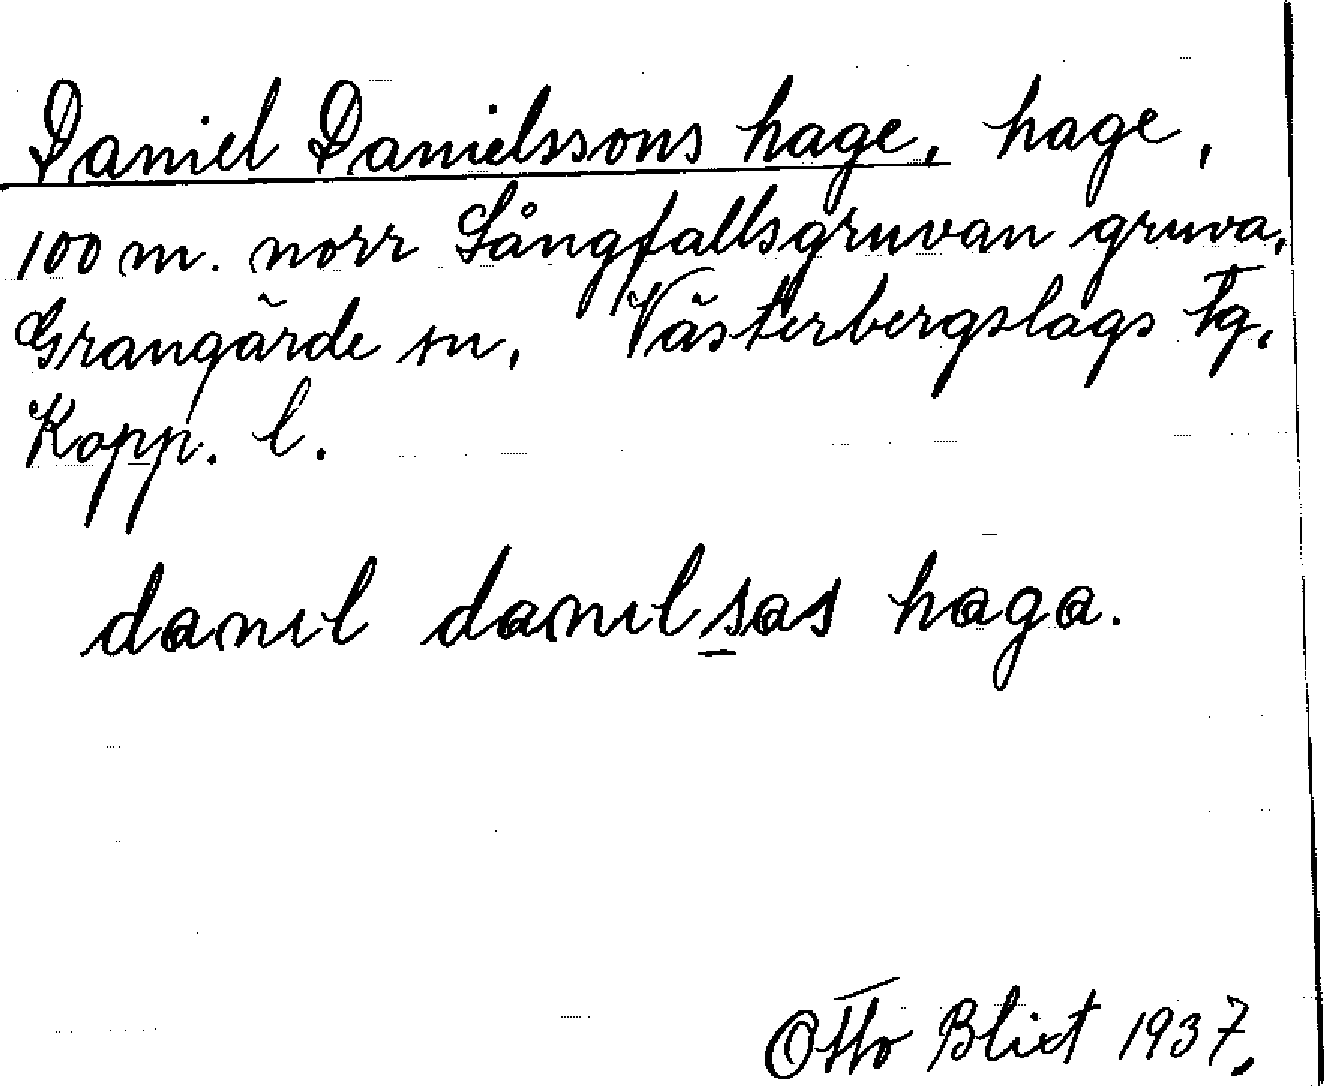 Daniel Danielssons hage, hage,
100 m. norr Långfallsgruvan gruva,
Grangärde sn, Västerbergslags tg,
Kopp. l.
danɩl danɩlsas haga.
Otto Blixt 1937,